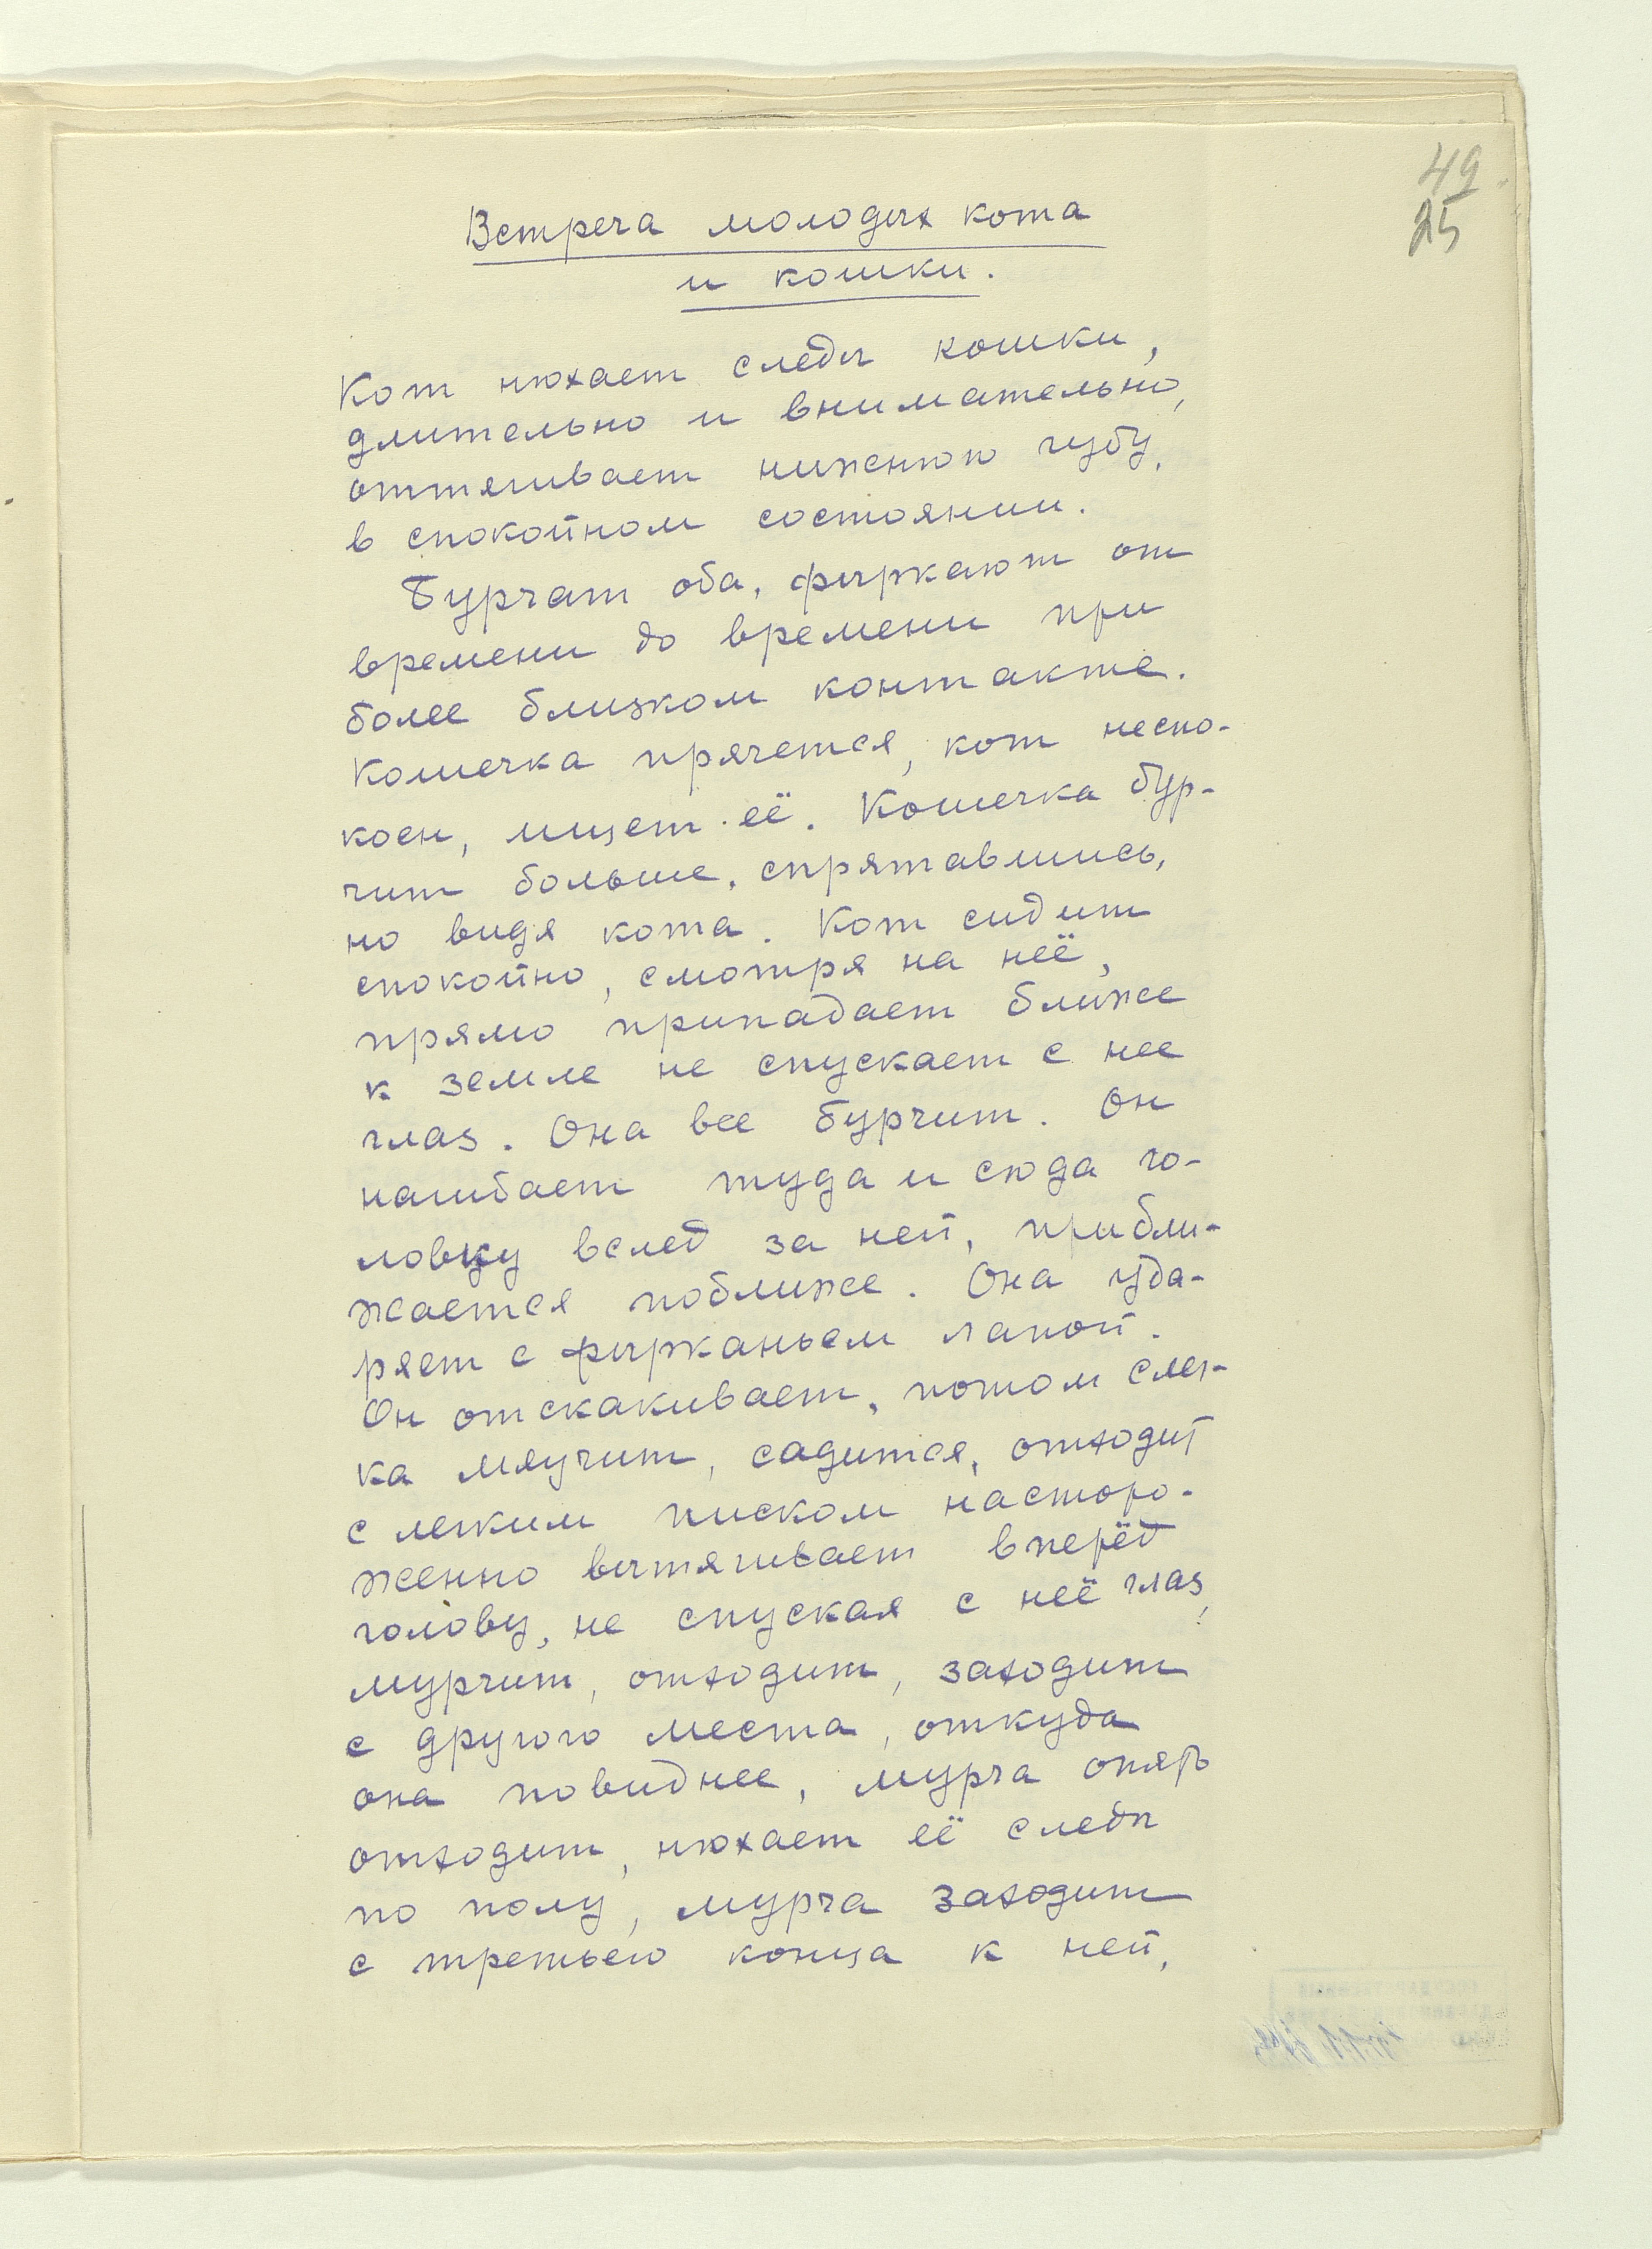 49
25
Встреча молодых кота
и кошки.
Кот нюхает следы кошки,
длительно и внимательно,
оттягивает нижнюю губу,
в спокойном состоянии.
Бурчат оба, фыркают от
времени до времени при
более близком контакте.
Кошечка прячется, кот неспо-
коен, ищет её. Кошечка бур-
чит больше, спрятавшись,
но видя кота. Кот сидит
спокойно, смотря на неё,
прямо припадает ближе
к земле не спускает с нее
глаз. Она все бурчит. Он
нагибает туда и сюда го-
ловку вслед за ней, прибли-
жается поближе. Она уда-
ряет с фырканьем лапой.
Он отскакивает, потом слег-
ка мяучит, садится, отходит
с легким писком насторо-
женно вытягивает вперёд
голову, не спуская с неё глаз,
мурчит, отходит, заходит
с другого места, откуда
она повиднее, мурча опять
отходит, нюхает её следы
по полу, мурча заходит
с третьего конца к ней,